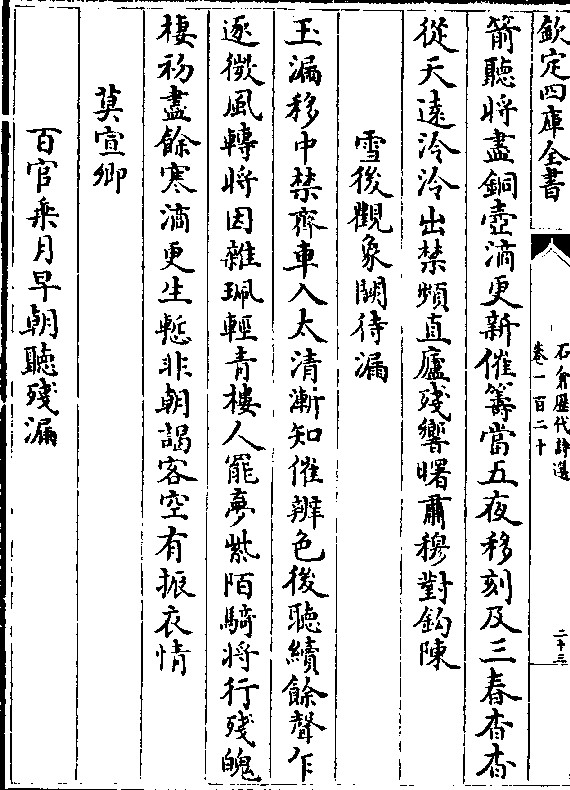 欽定四庫全書
石倉歷代詩選
卷一百二十
二十三
箭聽將盡銅壺滴更新催籌當五夜移刻及三春杳杳
從天遠泠泠出禁頻直廬殘響曙肅穆對鈎陳
雪後觀象闕待漏
玉漏移中禁齊車入太清漸知催辨色復聽續餘聲乍
逐微風轉將因雜珮輕青樓人罷夢紫陌騎將行殘魄
棲初盡餘寒滴更生慙非朝謁客空有振衣情
莫宣卿
百官乗月早朝聽殘漏